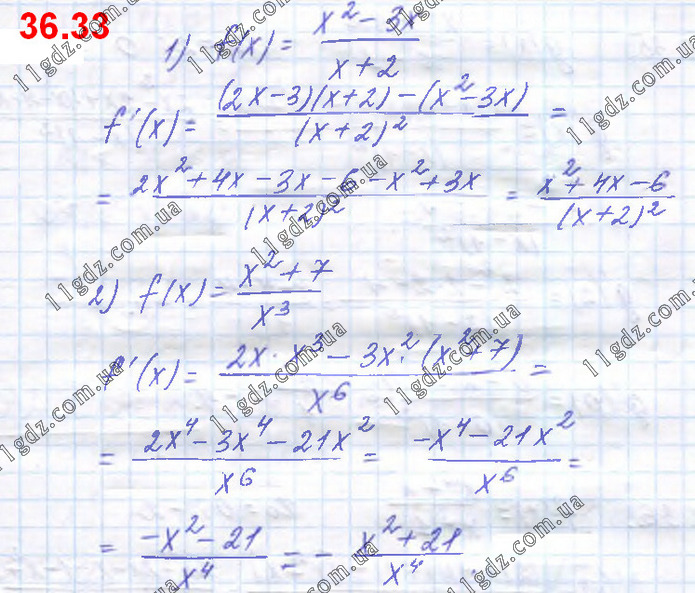 36.33
1) f(x) = (x² - 3x)/(x + 2)
f'(x) = ((2x-3)(x+2) - (x²-3x))/(x+2)² =
= (2x² + 4x - 3x - 6 - x² + 3x)/(x+2)² = (x² + 4x - 6)/(x+2)²
2) f(x) = (x² + 7)/x³
f'(x) = (2x · x³ - 3x² · (x² + 7))/x⁶ =
= (2x⁴ - 3x⁴ - 21x²)/x⁶ = (-x⁴ - 21x²)/x⁶ =
= (-x² - 21)/x⁴ = - (x² + 21)/x⁴
11gdz.com.ua
11gdz.com.ua
11gdz.com.ua
11gdz.com.ua
11gdz.com.ua
11gdz.com.ua
11gdz.com.ua
11gdz.com.ua
11gdz.com.ua
11gdz.com.ua
11gdz.com.ua
11gdz.com.ua